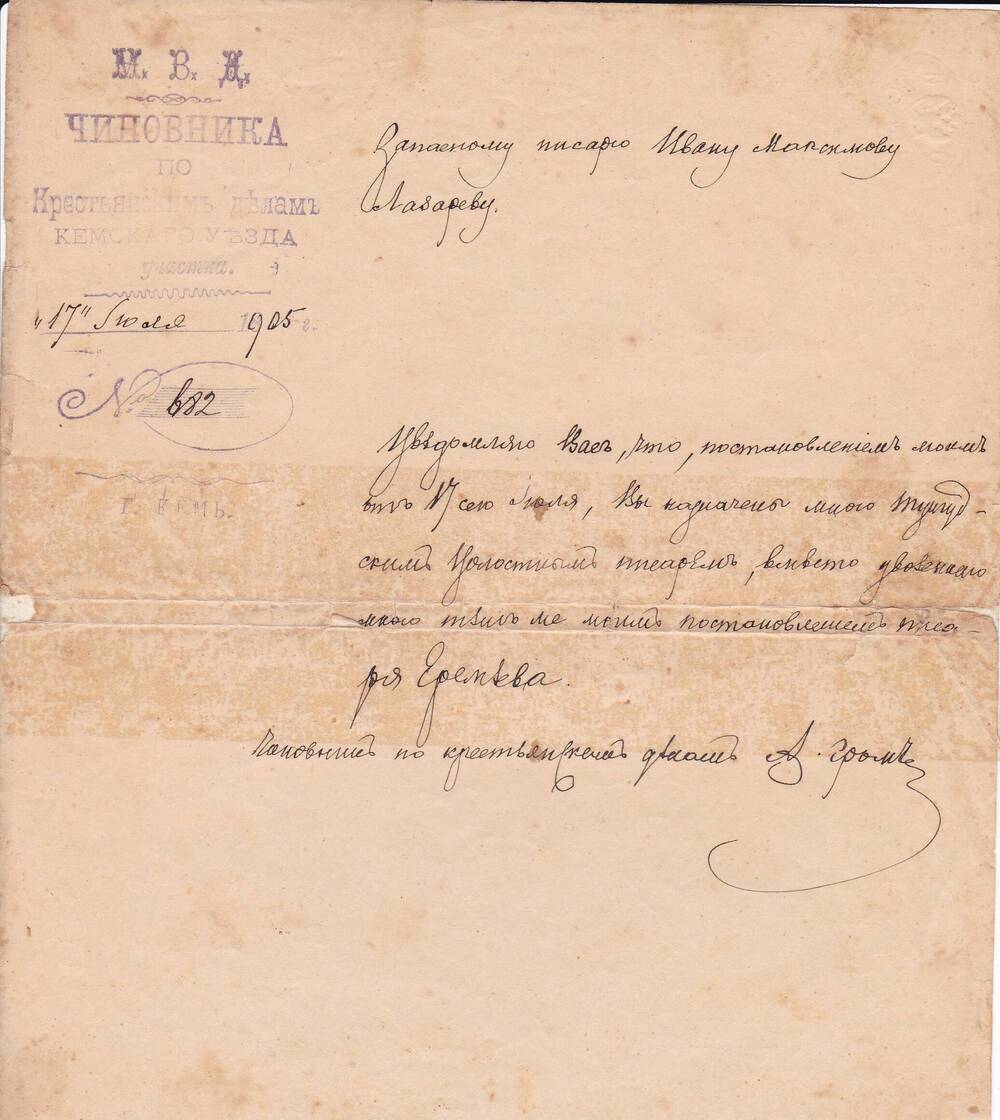 М. В. Д.
ЧИНОВНИКА
ПО
Крестьянскимъ дѣламъ
КЕМСКАГО УѢЗДА
участка.
"17" Іюля 1905 г.
№ 682
Г. КЕМЬ.
Запасному писарю Ивану Максимову
Лазареву.
Увѣдомляю Васъ, что, постановленіемъ моимъ
отъ 17 сего Іюля, Вы назначены мною Тунгуд-
скимъ Волостнымъ писаремъ, вмѣсто уволеннаго
мною тѣмъ же моимъ постановленіемъ писа-
ря Еремѣева.
Чиновникъ по крестьянскимъ дѣламъ А.